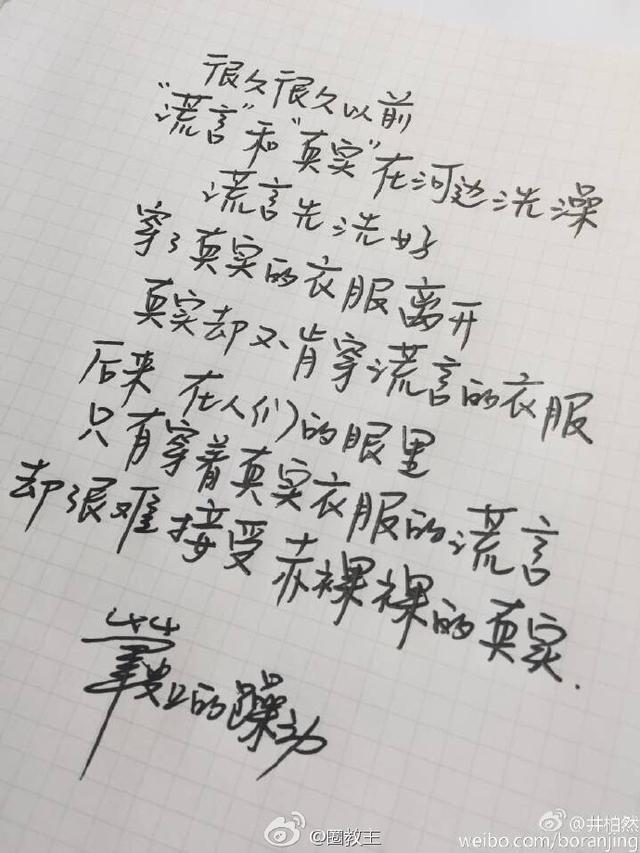 很久很久以前
"谎言"和"真实"在河边洗澡
谎言先洗好
穿了真实的衣服离开
真实却不肯穿谎言的衣服
后来 在人们的眼里
只有穿着真实衣服的谎言
却很难接受赤裸裸的真实.
的躁动
@圈教主
@井柏然
weibo.com/boranjing